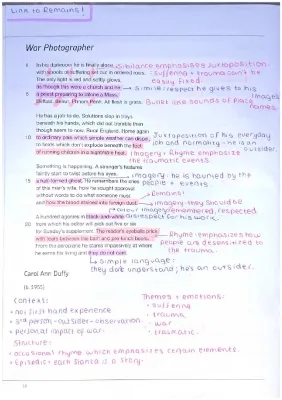 Link to Remains!
War Photographer
In his darkroom he is finally alone
with spools of suffering set out in ordered rows.
The only light is red and softly glows,
as though this were a church and he
5 a priest preparing to intone a Mass.
Belfast. Beirut. Phnom Penh. All flesh is grass.
sibilance emphasises juxtaposition.
: suffering + trauma can't be
easily fixed.
simile: respect he gives to his
images
names.
He has a job to do. Solutions slop in trays
beneath his hands, which did not tremble then
though seem to now. Rural England. Home again
10 to ordinary pain which simple weather can dispel,
to fields which don't explode beneath the feet
of running children in a nightmare heat.
Juxtaposition of his everyday
job and normality - he is an
outsider.
imagery + Rhyme emphasize
the traumatic events.
Something is happening. A stranger's features
faintly start to twist before his eyes,
15 a half-formed ghost. He remembers the cries
of this man's wife, how he sought approval
without words to do what someone must
and how the blood stained into foreign dust.
imagery: he is haunted by the
people + events.
remains!
imagery: they should be
remembered, respected.
A hundred agonies in black-and-white
20 from which his editor will pick out five or six
for Sunday's supplement. The reader's eyeballs prick
with tears between the bath and pre-lunch beers.
From the aeroplane he stares impassively at where
he earns his living and they do not care.
disrespect for his work.
Rhyme: emphasizes how
people are desensitised to
the trauma.
simple language:
they don't understand; he's an outsider.
Carol Ann Duffy
(b. 1955)
Context:
• not first hand experience
• 3rd person - outsider - observation.
• personal impact of war.
Themes + emotions:
• suffering
• trauma
• war
• traumatic.
Structure:
• occasional rhyme which emphasizes certain elements.
• Episodic - each stanza is a story.